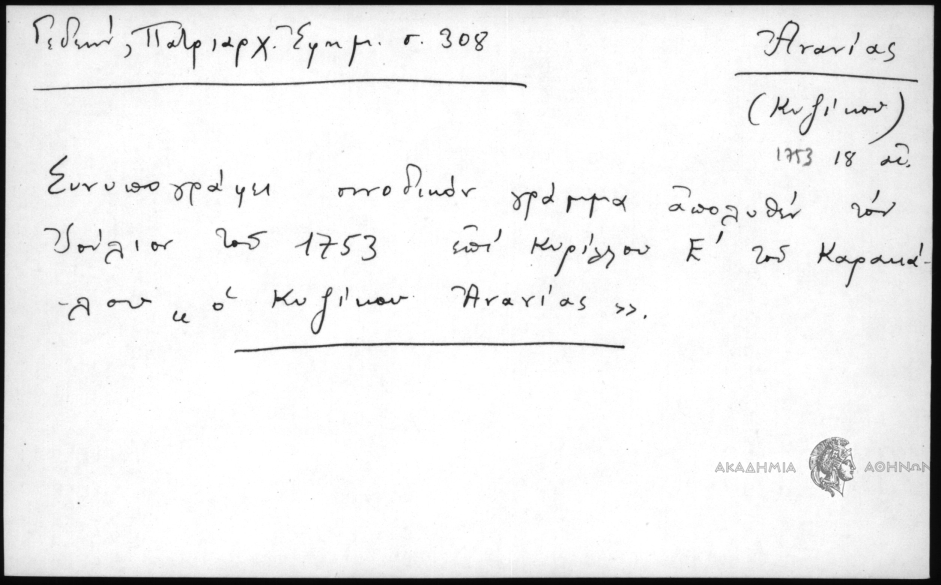 Γεδεών, Πατριαρχ. Ἐφημ. σ. 308
Ἀνανίας
(Κυζίκου)
1753 18 αἰ.
Συνυπογράφει συνοδικόν γράμμα ἀπολυθέν τόν
Ἰούλιον τοῦ 1753 ἐπί Κυρίλλου Ε' τοῦ Καρακά-
-λου „ ὁ Κυζίκου Ἀνανίας ».
ΑΚΑΔΗΜΙΑ ΑΘΗΝΩΝ